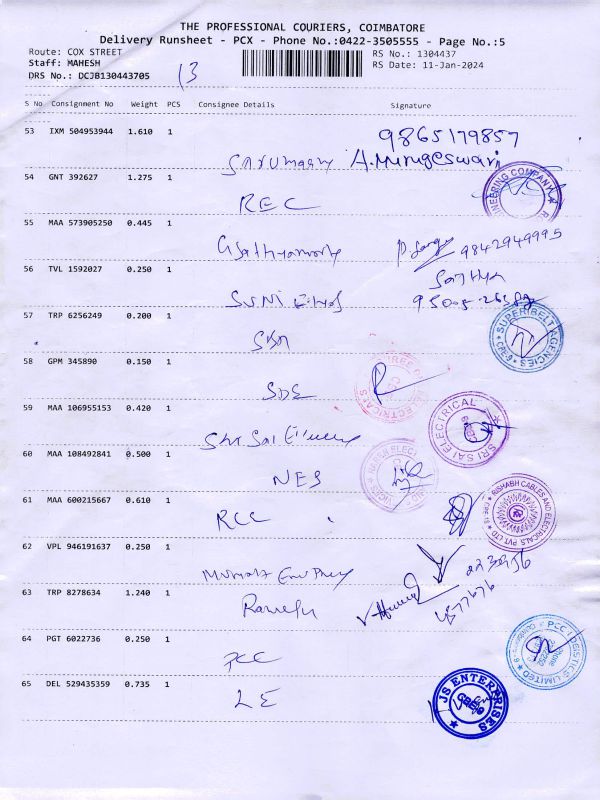 THE PROFESSIONAL COURIERS, COIMBATORE
Delivery Runsheet - PCX - Phone No.:0422-3505555 - Page No.:5
Route: COX STREET
RS No.: 1304437
Staff: MAHESH
RS Date: 11-Jan-2024
DRS No.: DCJB130443705
13
S No Consignment No Weight PCS Consignee Details Signature
53 IXM 504953944 1.610 1
9865179857
A.Murugeswari
54 GNT 392627 1.275 1
REC
55 MAA 573905250 0.445 1
9842949995
56 TVL 1592027 0.250 1
Sathya
57 TRP 6256249 0.200 1
SUPERIBELT AGENCIES
58 GPM 345890 0.150 1
SDE
59 MAA 106955153 0.420 1
SRI SAI ELECTRICAL
Shri Sai
60 MAA 108492841 0.500 1
NES
61 MAA 600215667 0.610 1
RISHABH CABLES AND ELECTRICALS PVT LTD
RCC
62 VPL 946191637 0.250 1
63 TRP 8278634 1.240 1
Ramesh
64 PGT 6022736 0.250 1
PCC LOGISTICS LIMITED
PCC
65 DEL 529435359 0.735 1
JS ENTERPRISES
LE